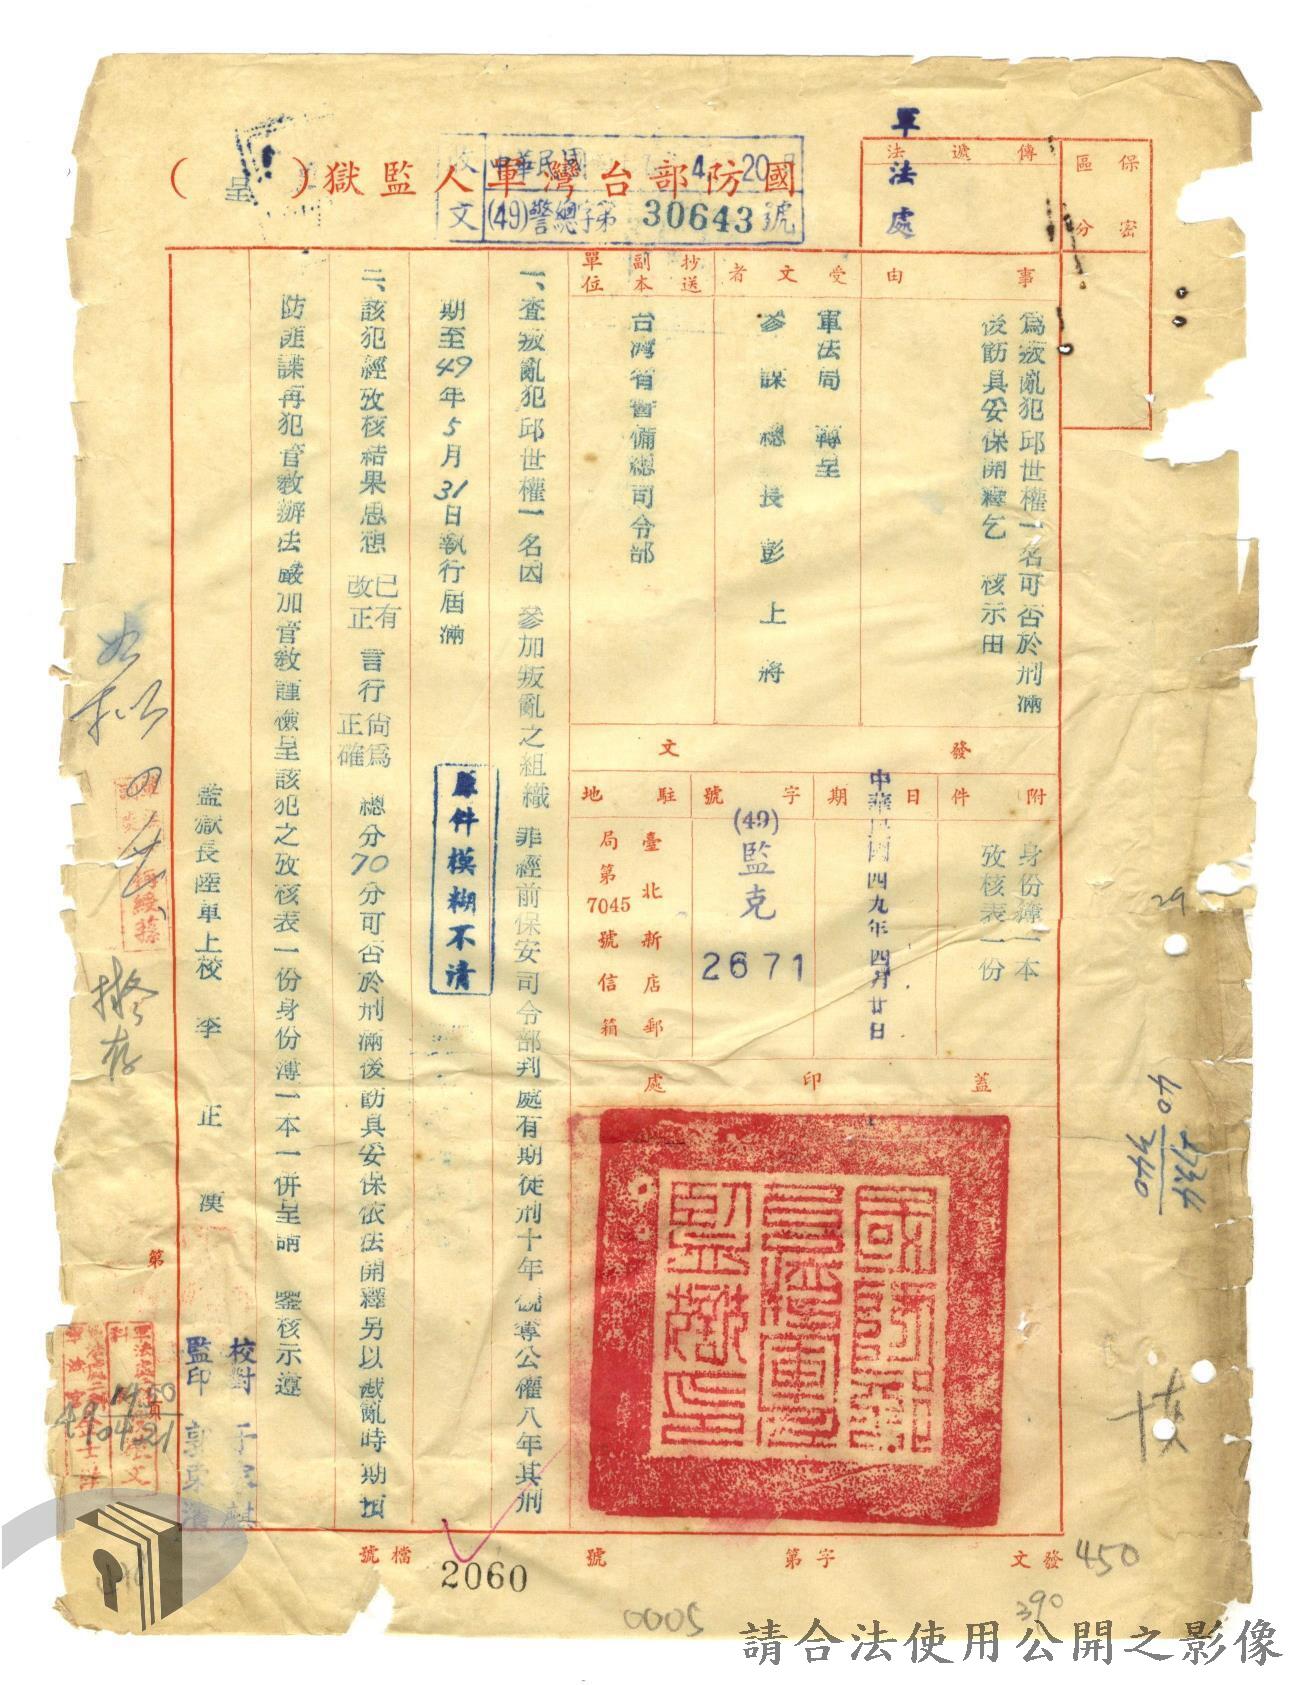 國防部台灣軍人監獄（呈）
收文 中華民國 4 20
(49)警總字第30643號
傳遞法
軍法處
保密區分
事由
為叛亂犯邱世權一名可否於刑滿
後飭具妥保開釋乞 核示由
受文者
軍法局 轉呈
參謀總長彭上將
抄送副本單位
台灣省警備總司令部
發文
附件
身份簿一本
攷核表一份
日期
中華民國四九年四月廿日
字號
(49)監克
2671
駐地
臺北新店郵
局第7045號信箱
蓋印處
國防部台灣軍人監獄印
一、查叛亂犯邱世權一名因 參加叛亂之組織 罪經前保安司令部判處有期徒刑十年褫奪公權八年其刑
期至49年5月31日執行屆滿
原件模糊不清
二、該犯經攷核結果思想 已有改正 言行 尚為正確 總分70分可否於刑滿後飭具妥保依法開釋另以戡亂時期預
防匪諜再犯管教辦法嚴加管教謹檢呈該犯之攷核表一份身份簿一本一併呈請 鑒核示遵
監獄長陸軍上校 李正漢
校對 于
監印 郭
如擬
擬存
第
1450
49 04 21
29
40
440
發文 字第 號
檔號
2060
450
390
0005
請合法使用公開之影像